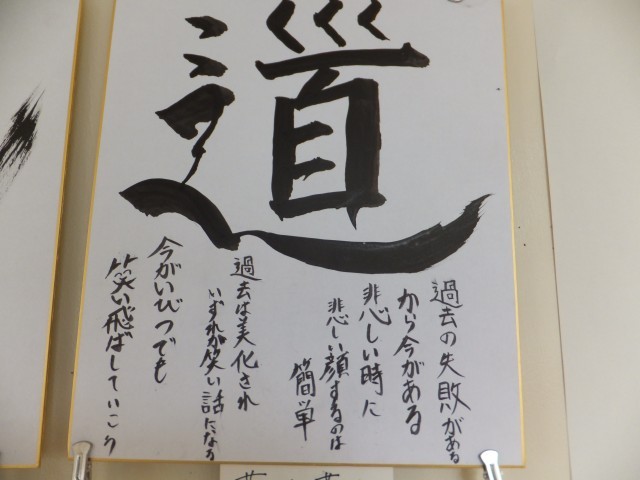 道
過去の失敗がある
から今がある
悲しい時に
悲しい顔するのは
簡単
過去は美化され
いずれか笑い話になる
今がいびつでも
笑い飛ばしていこう